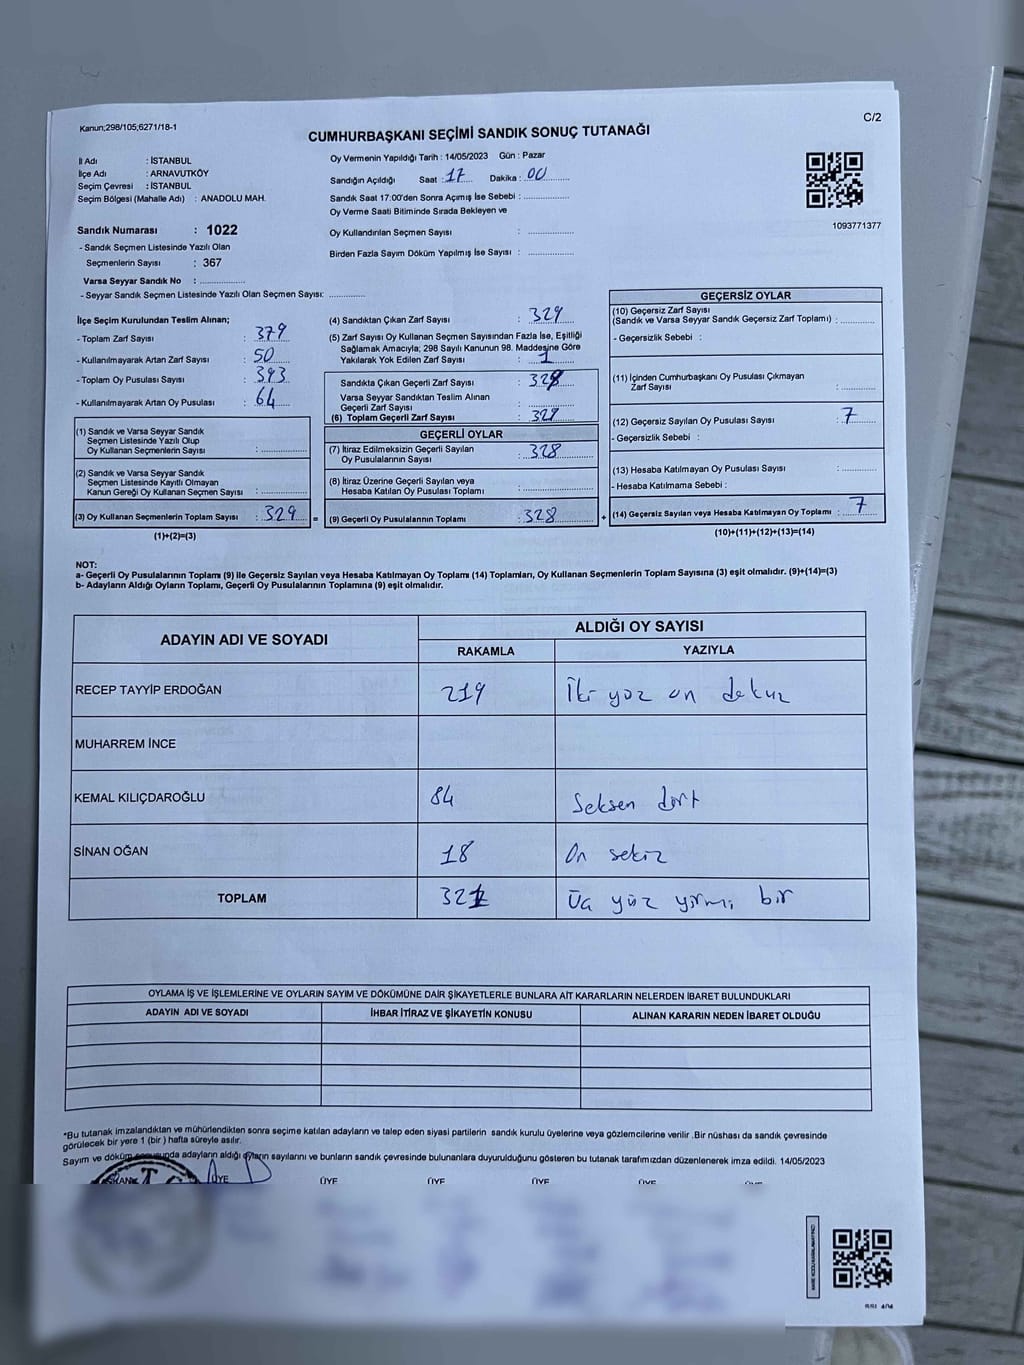 Kanun;298/105;6271/18-1
C/2
CUMHURBAŞKANI SEÇİMİ SANDIK SONUÇ TUTANAĞI
İl Adı : İSTANBUL
İlçe Adı : ARNAVUTKÖY
Seçim Çevresi : İSTANBUL
Seçim Bölgesi (Mahalle Adı) : ANADOLU MAH.
Sandık Numarası : 1022
- Sandık Seçmen Listesinde Yazılı Olan
Seçmenlerin Sayısı : 367
Varsa Seyyar Sandık No : ..............
- Seyyar Sandık Seçmen Listesinde Yazılı Olan Seçmen Sayısı: ..............
Oy Vermenin Yapıldığı Tarih : 14/05/2023 Gün : Pazar
Sandığın Açıldığı Saat : 17 Dakika : 00
Sandık Saat 17:00'den Sonra Açımış İse Sebebi : ..............
Oy Verme Saati Bitiminde Sırada Bekleyen ve
Oy Kullandırılan Seçmen Sayısı : ..............
Birden Fazla Sayım Döküm Yapılmış İse Sayısı : ..............
1093771377
İlçe Seçim Kurulundan Teslim Alınan;
- Toplam Zarf Sayısı : 379
- Kullanılmayarak Artan Zarf Sayısı : 50
- Toplam Oy Pusulası Sayısı : 393
- Kullanılmayarak Artan Oy Pusulası : 64
(1) Sandık ve Varsa Seyyar Sandık
Seçmen Listesinde Yazılı Olup
Oy Kullanan Seçmenlerin Sayısı : ..............
(2) Sandık ve Varsa Seyyar Sandık
Seçmen Listesinde Kayıtlı Olmayan
Kanun Gereği Oy Kullanan Seçmen Sayısı : ..............
(3) Oy Kullanan Seçmenlerin Toplam Sayısı : 329 =
(1)+(2)=(3)
(4) Sandıktan Çıkan Zarf Sayısı : 329
(5) Zarf Sayısı Oy Kullanan Seçmen Sayısından Fazla İse, Eşitliği
Sağlamak Amacıyla; 298 Sayılı Kanunun 98. Maddesine Göre
Yakılarak Yok Edilen Zarf Sayısı : 1
Sandıkta Çıkan Geçerli Zarf Sayısı : 328
Varsa Seyyar Sandıktan Teslim Alınan
Geçerli Zarf Sayısı : ..............
(6) Toplam Geçerli Zarf Sayısı : 328
GEÇERLİ OYLAR
(7) İtiraz Edilmeksizin Geçerli Sayılan
Oy Pusulalarının Sayısı : 328
(8) İtiraz Üzerine Geçerli Sayılan veya
Hesaba Katılan Oy Pusulası Toplamı : ..............
(9) Geçerli Oy Pusulalarının Toplamı : 328 +
GEÇERSİZ OYLAR
(10) Geçersiz Zarf Sayısı
(Sandık ve Varsa Seyyar Sandık Geçersiz Zarf Toplamı) : ..............
- Geçersizlik Sebebi :
(11) İçinden Cumhurbaşkanı Oy Pusulası Çıkmayan
Zarf Sayısı : ..............
(12) Geçersiz Sayılan Oy Pusulası Sayısı : 7
- Geçersizlik Sebebi :
(13) Hesaba Katılmayan Oy Pusulası Sayısı : ..............
- Hesaba Katılmama Sebebi :
(14) Geçersiz Sayılan veya Hesaba Katılmayan Oy Toplamı : 7
(10)+(11)+(12)+(13)=(14)
NOT:
a- Geçerli Oy Pusulalarının Toplamı (9) ile Geçersiz Sayılan veya Hesaba Katılmayan Oy Toplamı (14) Toplamları, Oy Kullanan Seçmenlerin Toplam Sayısına (3) eşit olmalıdır. (9)+(14)=(3)
b- Adayların Aldığı Oyların Toplamı, Geçerli Oy Pusulalarının Toplamına (9) eşit olmalıdır.
ADAYIN ADI VE SOYADI
ALDIĞI OY SAYISI
RAKAMLA YAZIYLA
RECEP TAYYİP ERDOĞAN 219 İki yüz on dokuz
MUHARREM İNCE
KEMAL KILIÇDAROĞLU 84 Seksen dört
SİNAN OĞAN 18 On sekiz
TOPLAM 321 Üç yüz yirmi bir
OYLAMA İŞ VE İŞLEMLERİNE VE OYLARIN SAYIM VE DÖKÜMÜNE DAİR ŞİKAYETLERLE BUNLARA AİT KARARLARIN NELERDEN İBARET BULUNDUKLARI
ADAYIN ADI VE SOYADI İHBAR İTİRAZ VE ŞİKAYETİN KONUSU ALINAN KARARIN NEDEN İBARET OLDUĞU
*Bu tutanak imzalandıktan ve mühürlendikten sonra seçime katılan adayların ve talep eden siyasi partilerin sandık kurulu üyelerine veya gözlemcilerine verilir .Bir nüshası da sandık çevresinde
görülecek bir yere 1 (bir ) hafta süreyle asılır.
Sayım ve döküm sonucunda adayların aldığı oyların sayılarını ve bunların sandık çevresinde bulunanlara duyurulduğunu gösteren bu tutanak tarafımızdan düzenlenerek imza edildi. 14/05/2023
ÜYE ÜYE ÜYE ÜYE ÜYE